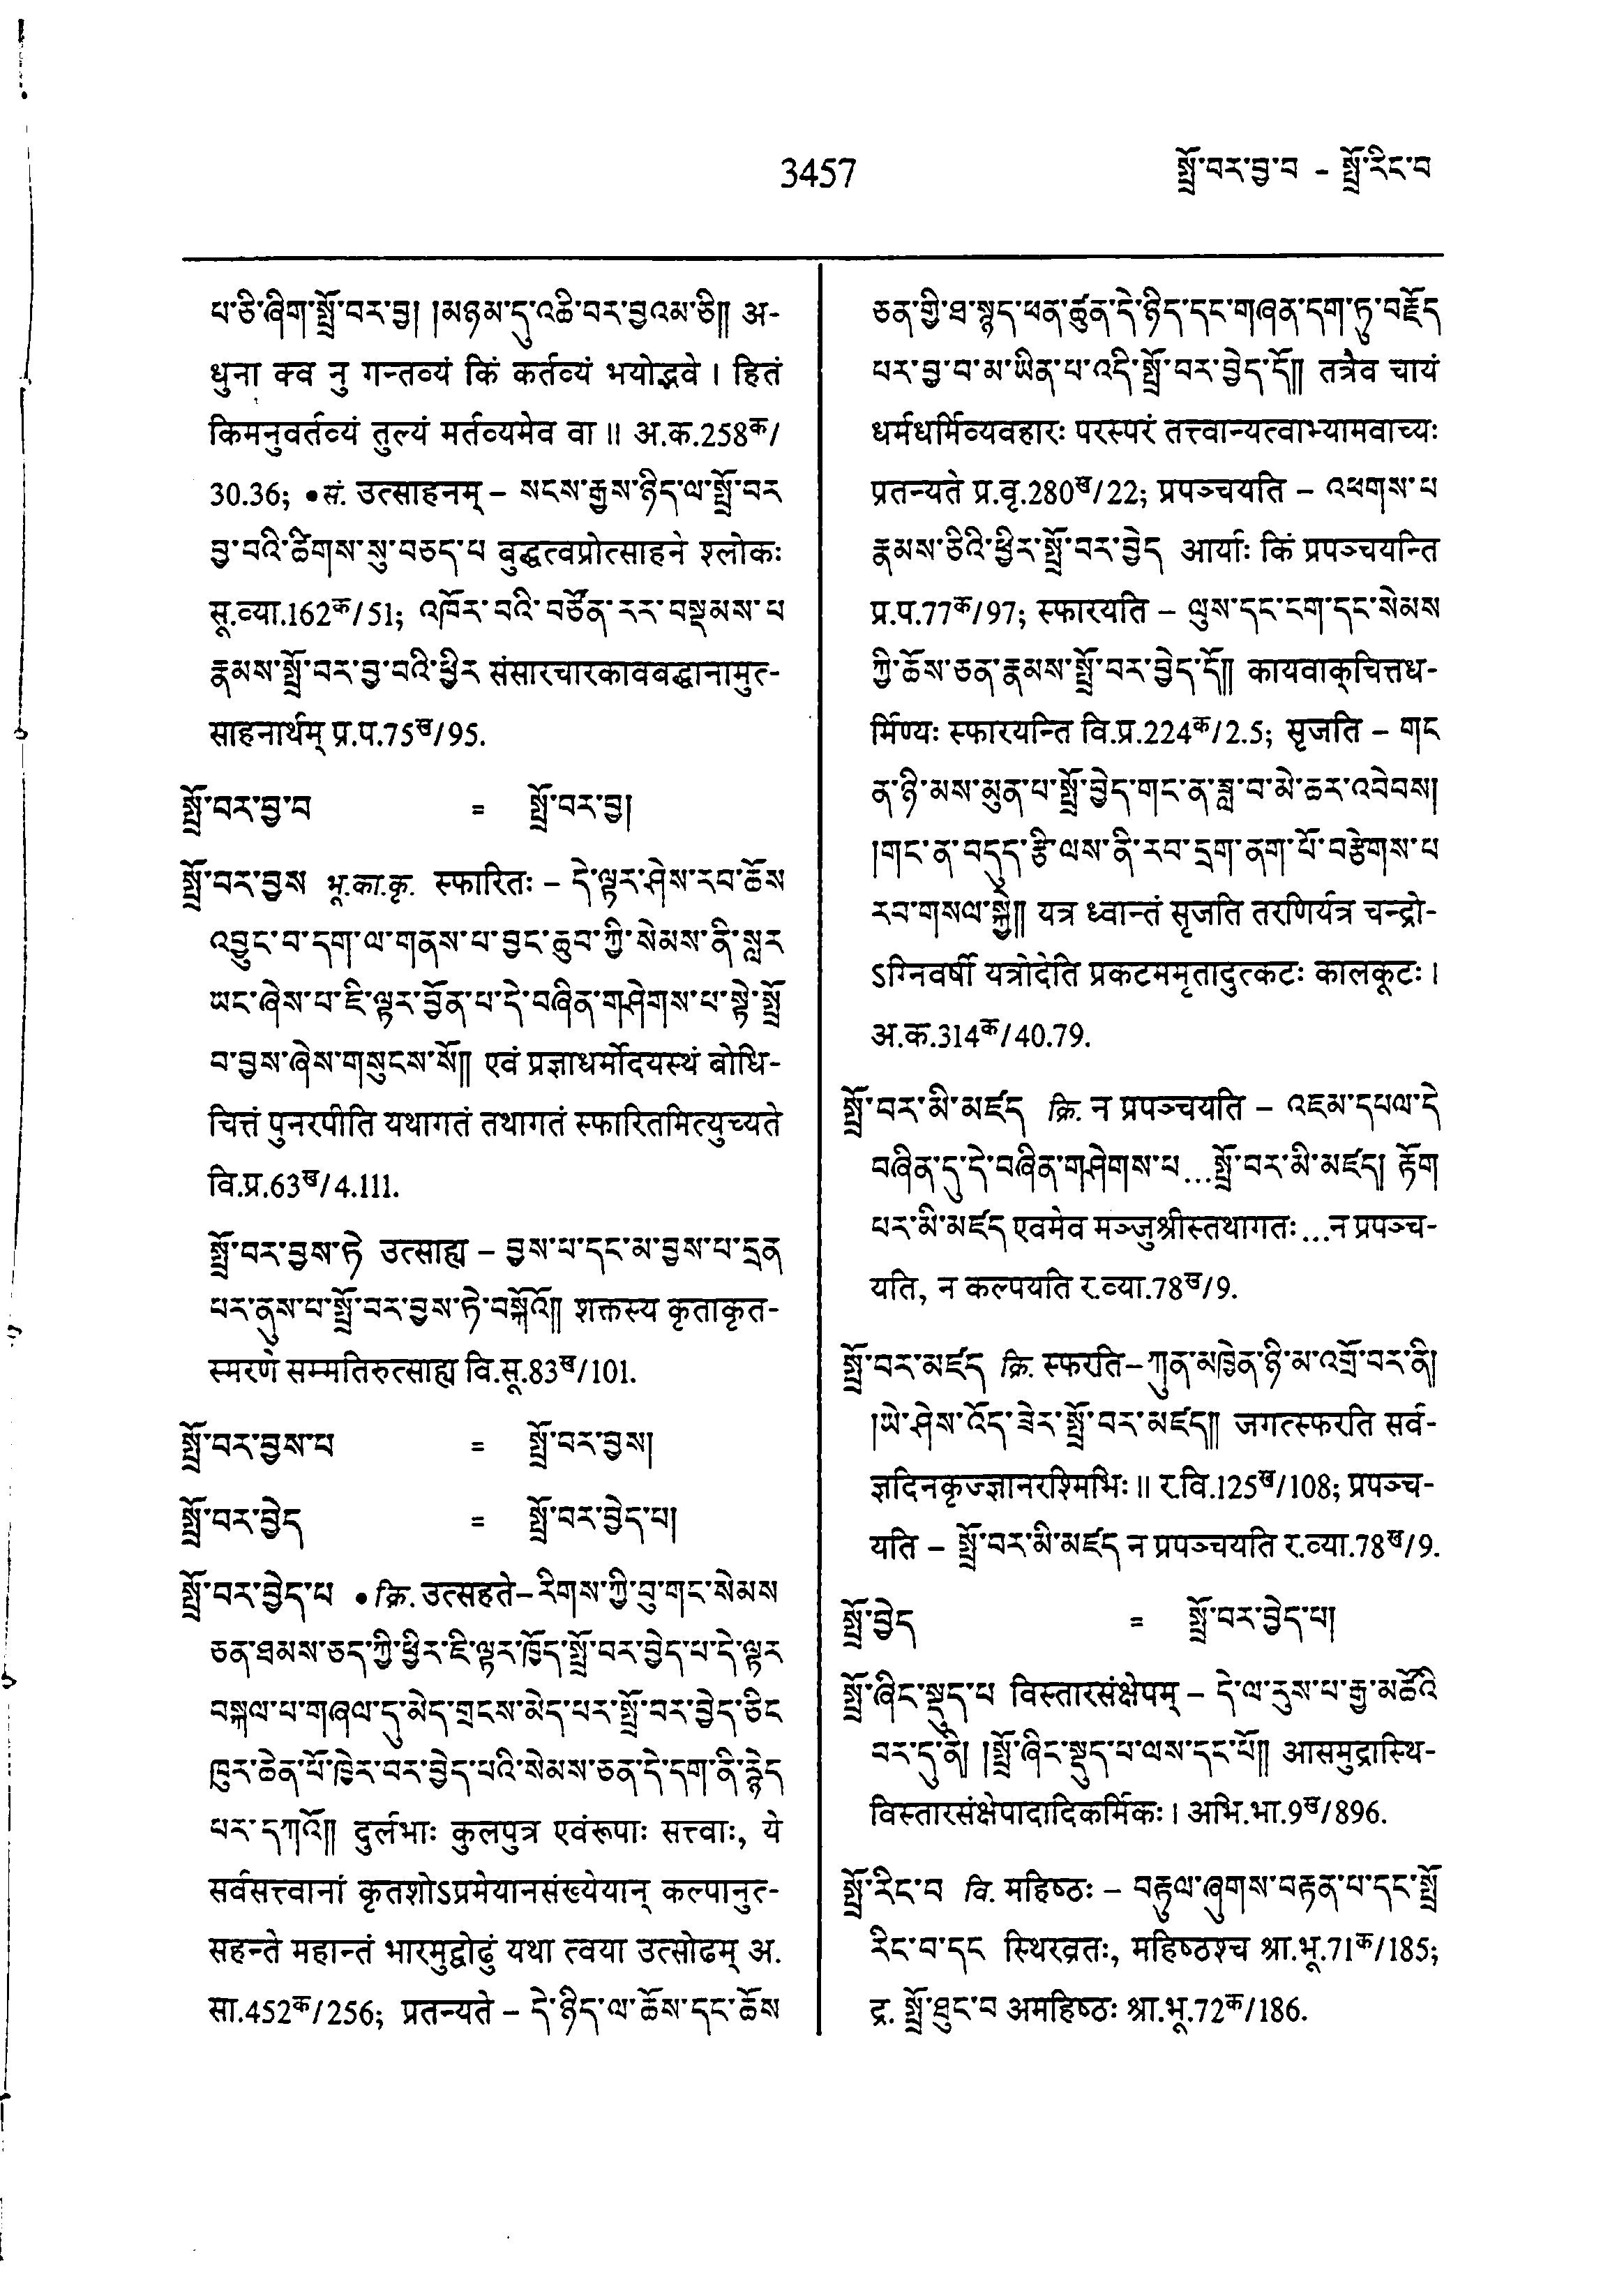 3457
སྤྲོ་བར་བྱ་བ - སྤྲོ་རིང་བ
པ་ཅི་ཞིག་སྤྲོ་བར་བྱ། །མཉམ་དུ་འཆི་བར་བྱའམ་ཅི།། अ-
धुना क्व नु गन्तव्यं किं कर्तव्यं भयोद्भवे । हितं
किमनुवर्तव्यं तुल्यं मर्तव्यमेव वा ॥ अ.क.258क/
30.36; •सं. उत्साहनम् – སངས་རྒྱས་ཉིད་ལ་སྤྲོ་བར
བྱ་བའི་ཚིགས་སུ་བཅད་པ बुद्धत्वप्रोत्साहने श्लोकः
सू.व्या.162क/51; འཁོར་བའི་བཙོན་རར་བསྡམས་པ
རྣམས་སྤྲོ་བར་བྱ་བའི་ཕྱིར संसारचारकावबद्धानामुत-
साहनार्थम् प्र.प.75ख/95.
སྤྲོ་བར་བྱ་བ = སྤྲོ་བར་བྱ།
སྤྲོ་བར་བྱས भू.का.कृ. स्फारितः – དེ་ལྟར་ཤེས་རབ་ཆོས
འབྱུང་བ་དག་ལ་གནས་པ་བྱང་ཆུབ་ཀྱི་སེམས་ནི་སླར
ཡང་ཞེས་པ་ཇི་ལྟར་བྱོན་པ་དེ་བཞིན་གཤེགས་པ་སྟེ་སྤྲོ
བ་བྱས་ཞེས་གསུངས་སོ།། एवं प्रज्ञाधर्मोदयस्थं बोधि-
चित्तं पुनरपीति यथागतं तथागतं स्फारितमित्युच्यते
वि.प्र.63ख/4.111.
སྤྲོ་བར་བྱས་ཏེ उत्साह्य – བྱས་པ་དང་མ་བྱས་པ་དྲན
པར་ནུས་པ་སྤྲོ་བར་བྱས་ཏེ་བསྐོའོ།། शक्तस्य कृताकृत-
स्मरणे सम्मतिरुत्साह्य वि.सू.83ख/101.
སྤྲོ་བར་བྱས་པ = སྤྲོ་བར་བྱས།
སྤྲོ་བར་བྱེད = སྤྲོ་བར་བྱེད་པ།
སྤྲོ་བར་བྱེད་པ • क्रि. उत्सहते– རིགས་ཀྱི་བུ་གང་སེམས
ཅན་ཐམས་ཅད་ཀྱི་ཕྱིར་ཇི་ལྟར་ཁྱོད་སྤྲོ་བར་བྱེད་པ་དེ་ལྟར
བསྐལ་པ་གཞལ་དུ་མེད་གྲངས་མེད་པར་སྤྲོ་བར་བྱེད་ཅིང
ཁུར་ཆེན་པོ་ཁྱེར་བར་བྱེད་པའི་སེམས་ཅན་དེ་དག་ནི་རྙེད
པར་དཀའོ།། दुर्लभाः कुलपुत्र एवंरूपाः सत्त्वाः, ये
सर्वसत्त्वानां कृतशोऽप्रमेयानसंख्येयान् कल्पानुत-
सहन्ते महान्तं भारमुद्वोढुं यथा त्वया उत्सोढम् अ.
सा.452क/256; प्रतन्यते – དེ་ཉིད་ལ་ཆོས་དང་ཆོས
ཅན་གྱི་ཐ་སྙད་ཕན་ཚུན་དེ་ཉིད་དང་གཞན་དག་ཏུ་བརྗོད
པར་བྱ་བ་མ་ཡིན་པ་འདི་སྤྲོ་བར་བྱེད་དོ།། तत्रैव चायं
धर्मधर्मिव्यवहारः परस्परं तत्त्वान्यत्वाभ्यामवाच्यः
प्रतन्यते प्र.वृ.280ख/22; प्रपञ्चयति – འཕགས་པ
རྣམས་ཅིའི་ཕྱིར་སྤྲོ་བར་བྱེད आर्याः किं प्रपञ्चयन्ति
प्र.प.77क/97; स्फारयति – ལུས་དང་ངག་དང་སེམས
ཀྱི་ཆོས་ཅན་རྣམས་སྤྲོ་བར་བྱེད་དོ།། कायवाक्चित्तध-
र्मिण्यः स्फारयन्ति वि.प्र.224क/2.5; सृजति – གང
ན་ཉི་མས་མུན་པ་སྤྲོ་བྱེད་གང་ན་ཟླ་བ་མེ་ཆར་འབེབས།
།གང་ན་བདུད་རྩི་ལས་ནི་རབ་དྲག་ནག་པོ་བརྩེགས་པ
རབ་གསལ་སྐྱེ།། यत्र ध्वान्तं सृजति तरणिर्यत्र चन्द्रो-
ऽग्निवर्षी यत्रोदेति प्रकटममृतादुत्कटः कालकूटः ।
अ.क.314क/40.79.
སྤྲོ་བར་མི་མཛད क्रि. न प्रपञ्चयति – འཇམ་དཔལ་དེ
བཞིན་དུ་དེ་བཞིན་གཤེགས་པ...སྤྲོ་བར་མི་མཛད། རྟོག
པར་མི་མཛད एवमेव मञ्जुश्रीस्तथागतः...न प्रपञ्च-
यति, न कल्पयति र.व्या.78ख/9.
སྤྲོ་བར་མཛད क्रि. स्फरति– ཀུན་མཁྱེན་ཉི་མ་འགྲོ་བར་ནི།
།ཡེ་ཤེས་འོད་ཟེར་སྤྲོ་བར་མཛད།། जगत्स्फरति सर्व-
ज्ञदिनकृज्ज्ञानरश्मिभिः ॥ र.वि.125ख/108; प्रपञ्च-
यति – སྤྲོ་བར་མི་མཛད न प्रपञ्चयति र.व्या.78ख/9.
སྤྲོ་བྱེད = སྤྲོ་བར་བྱེད་པ།
སྤྲོ་ཞིང་སྡུད་པ विस्तारसंक्षेपम् – དེ་ལ་རུས་པ་རྒྱ་མཚོའི
བར་དུ་ནི། །སྤྲོ་ཞིང་སྡུད་པ་ལས་དང་པོ།། आसमुद्रास्थि-
विस्तारसंक्षेपादादिकर्मिकः । अभि.भा.9ख/896.
སྤྲོ་རིང་བ वि. महिष्ठः – བརྟུལ་ཞུགས་བརྟན་པ་དང་སྤྲོ
རིང་བ་དང स्थिरव्रतः, महिष्ठश्च श्रा.भू.71क/185;
द्र. སྤྲོ་ཐུང་བ अमहिष्ठः श्रा.भू.72क/186.